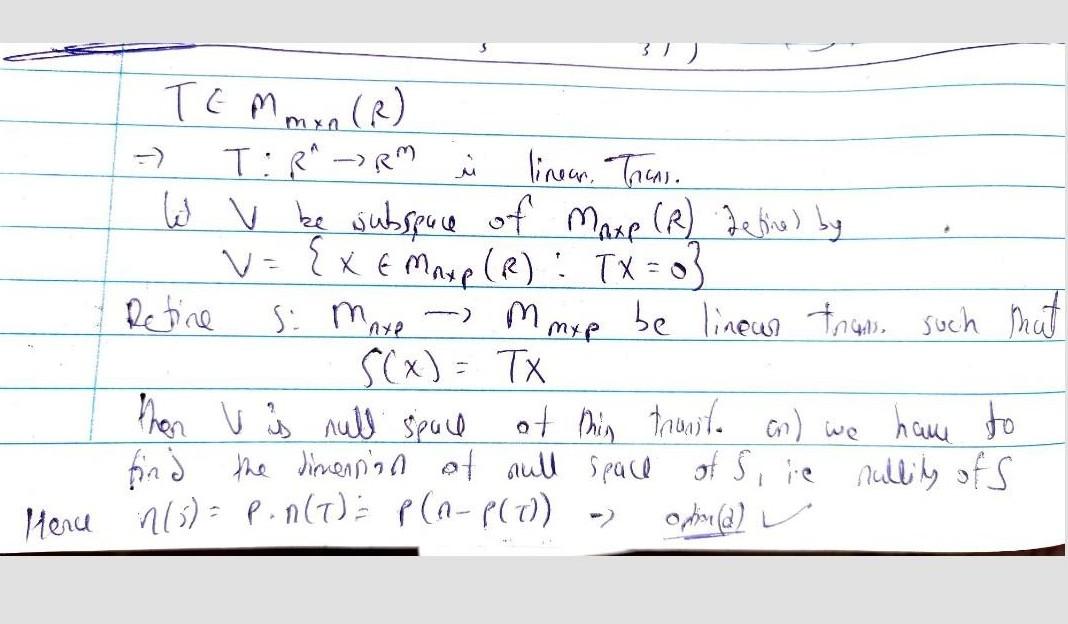 T ∈ M m×n (R)
=> T : Rⁿ → Rᵐ is linear. Trans.
let V be subspace of M n×p (R) defined by
V = { X ∈ M n×p (R) : TX = 0}
Define S: M n×p → M m×p be linear trans. such that
S(X) = TX
Then V is null space of this transf. and we have to
find the dimension of null space of S, i.e nullity of S
Hence η(S) = P. η(T) = P(n - ρ(T)) → option (d) ✓